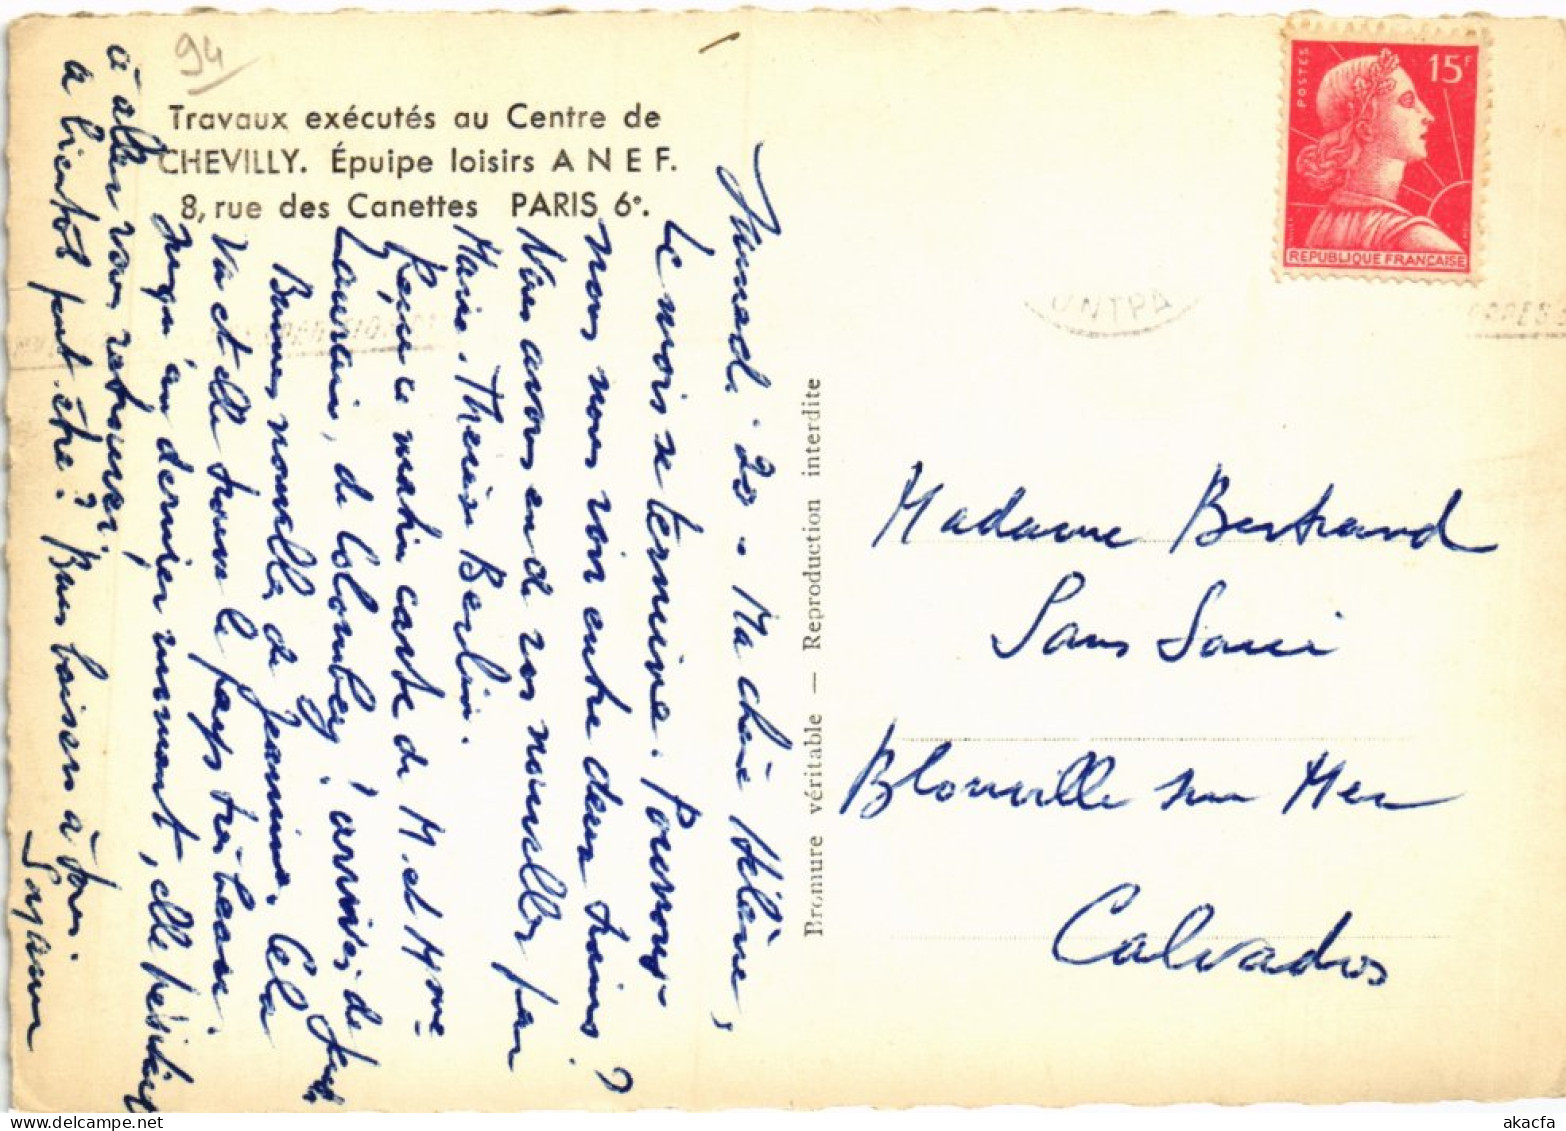 94
Travaux exécutés au Centre de
CHEVILLY. Épuipe loisirs A N E F.
8, rue des Canettes PARIS 6e.
POSTES
15F
REPUBLIQUE FRANÇAISE
Bromure véritable — Reproduction interdite
Madame Bertrand
Sans Souci
Blonville sur Mer
Calvados
Samedi 20. Ma chère Hélène,
Le mois se termine. Pourrons-
nous nous voir entre deux trains?
Nous avons eu de vos nouvelles par
Marie-Thérèse Berlin.
Reçu ce matin carte de M. et Mme
de Colombey! arrivés de
Bonnes nouvelles de Jeannine. Cela
va et elle trouve le pays très beau.
Jusqu'au dernier moment, elle hésitait
à aller vous retrouver.
à bientôt peut-être? Bons baisers à tous.